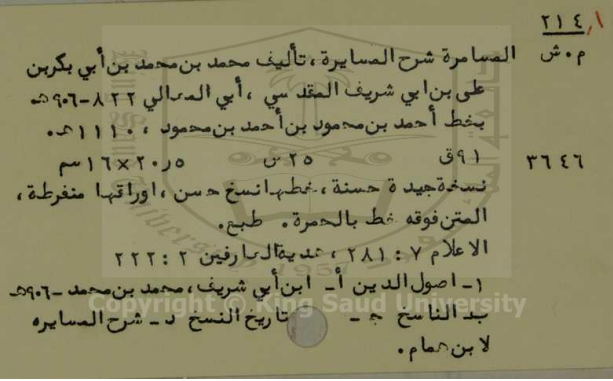 ٢١٤ ١ر
م٠ش المسامرة شرح المسايرة، تأليف محمد بن محمد بن أبي بكر بن
على بن ابي شريف المقدسي، أبي المعالي ٨٢٢-٩٠٦هـ
بخط أحمد بن محمود بن أحمد بن محمود، ١١١٠هـ.
٣٦٤٦ ٩١ق ٢٥س ٢٠ر٥×١٦سم
نسخة جيدة حسنة، خطها نسخ حسن، اوراقها منفرطة،
المتن فوقه خط بالحمرة. طبع.
الاعلام ٧: ٢٨١، هدية العارفين ٢: ٢٢٢
١- اصول الدين أ- ابن أبي شريف، محمد بن محمد -٩٠٦هـ
ب- الناسخ ج- تاريخ النسخ د- شرح المسايره
لابن همام.
Copyright © King Saud University
1957